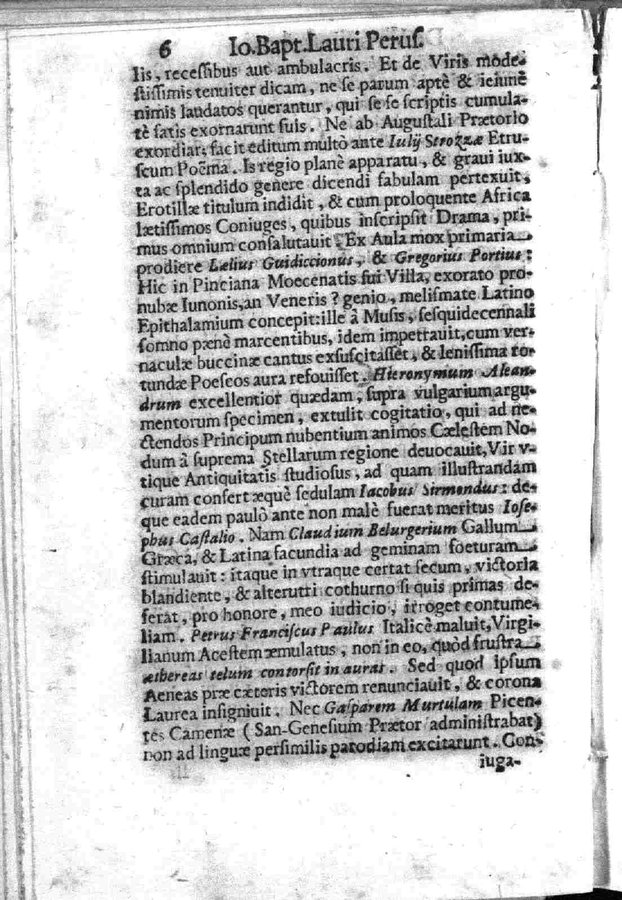 6 Io.Bapt.Lauri Peruſ.
Iis, receſſibus aut ambulacris. Et de Viris mode-
ſtiſſimis tenuiter dicam, ne ſe parum aptè & ieiunè
nimis laudatos querantur, qui ſe ſe ſcriptis cumula-
tè ſatis exornarunt ſuis. Ne ab Auguſtali Prætorio
exordiar; facit editum multò ante Iulij Strozzæ Etru-
ſcum Poëma. Is regio planè apparatu, & graui iux-
ta ac ſplendido genere dicendi fabulam pertexuit,
Erotillæ titulum indidit, & cum proloquente Africa
lætiſſimos Coniuges, quibus inſcripſit Drama, pri-
mus omnium conſalutauit. Ex Aula mox primaria
prodiere Lælius Guidiccionus, & Gregorius Portius:
Hic in Pinciana Moecenatis ſui Villa, exorato pro-
nubæ Iunonis,an Veneris? genio, meliſmate Latino
Epithalamium concepit:ille à Muſis, ſeſquidecennali
ſomno pænè marcentibus, idem impetrauit,cum ver-
naculæ buccinæ cantus exſuſcitaſſet, & leniſſima ro-
tundæ Poeſeos aura refouiſſet. Hieronymum Alean-
drum excellentior quædam, ſupra vulgarium argu-
mentorum ſpecimen, extulit cogitatio, qui ad ne-
ctendos Principum nubentium animos Cæleſtem No-
dum à ſuprema Stellarum regione deuocauit,Vir v-
tique Antiquitatis ſtudioſus, ad quam illuſtrandam
curam confert æquè ſedulam Iacobus Sirmondus: de-
que eadem paulò ante non malè fuerat meritus Ioſe-
phus Caſtalio. Nam Claudium Belurgerium Gallum
Græca, & Latina facundia ad geminam foeturam
ſtimulauit: itaque in vtraque certat ſecum, victoria
blandiente, & alterutri cothurno ſi quis primas de-
ferat, pro honore, meo iudicio, irroget contume-
liam. Petrus Franciſcus Paulus Italicè maluit,Virgi-
lianum Aceſtem æmulatus, non in eo, quòd fruſtra
æthereas telum contorſit in auras. Sed quod ipſum
Aeneas præ cæteris victorem renunciauit, & corona
Laurea inſigniuit. Nec Gaſparem Murtulam Picen-
tes Camenæ (San-Geneſium Prætor adminiſtrabat)
non ad linguæ perſimilis parodiam excitarunt. Con-
iuga-